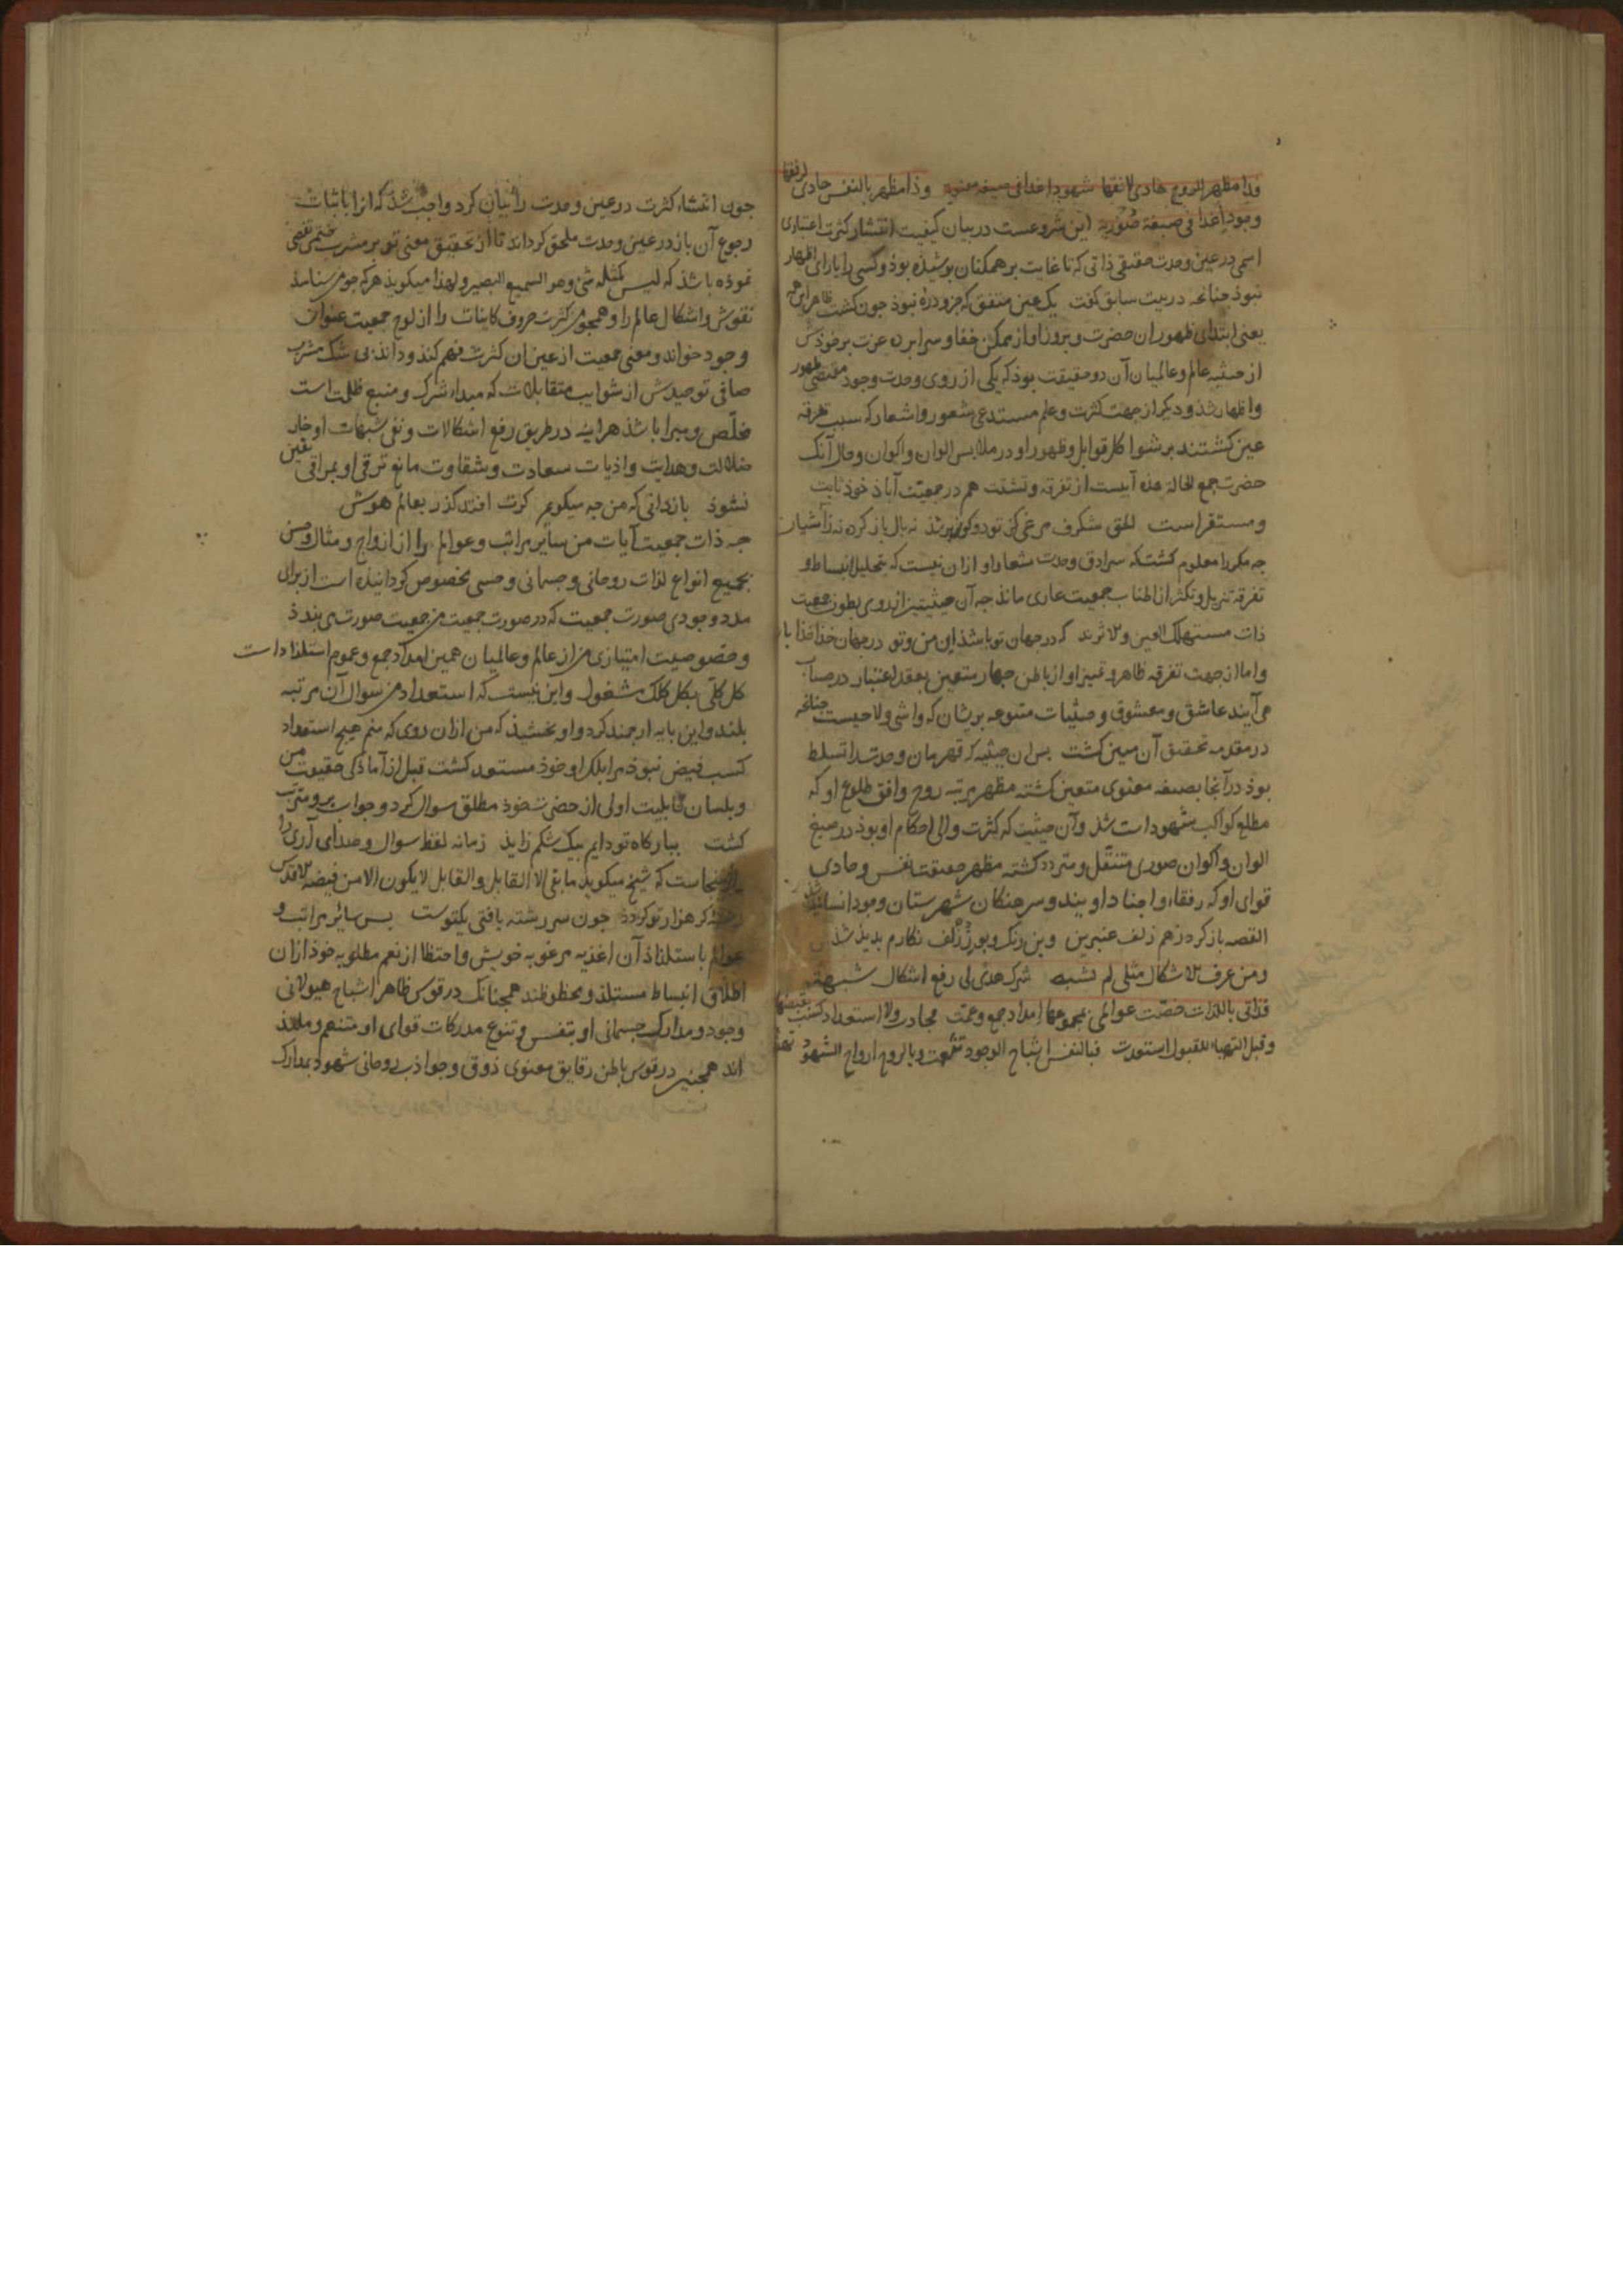 فذا مظهر للروح هادی لافقها شهودا غدا فی صیغه معنویه وذا مظهر بالنفس حادی لرفقها
وجودا غدا فی صیغة صوریه این شروعست در بیان کیفیت انتشار کثرت اعتباری
اسمی در عین وحدت حقیقی ذاتی که تا غایت بر همکنان پوشیده بوذ وکسی را یارای اظهار
نبوذ جنانجه در بیت سابق کفت یک عین متفق که جزو ذرهٔ نبوذ جون کشت ظاهر این همه
یعنی ابتدای ظهور ان حضرت وبروز او از ممکن خفا و سرابرده عزت برخوذش
از حیثیه عالم وعالمیان آن دو حقیقت بوذ که یکی از روی وحدت وجود مقتضی ظهور
واظهار شذ ودیکر از جهت کثرت وعلم مستدعی شعور واشعار که سبب تفرقه
عین کشتند بر شوا کل قوابل وظهور او در ملابس الوان واکوان وحال آنک
حضرت جمع الحالة هذه آبیست از تفرقه وتشتت هم در جمعیت آباذ خوذ ثابت
ومستقر است للحق شکرف مرغی کز تو دو کون پر شذ نه بال باز کرده نه ز آشیان
جه مکررا معلوم کشت که سرادق وحدت شعار او ازان نیست که بتحلیل انبساط و
تفرقه تنزیل وتکثر از اطناب جمعیت عاری ماند جه آن حیثیتین از روی بطون جمعیت
ذات مستهلک العین والاثرند که در جهان تو باشذ این من وتو در جهان خذا خذا باشد
واما از جهت تفرقه ظاهر وتمیز او از باطن جهار متعین بعقد اعتبار در حساب
می آیند عاشق ومعشوق وحیثیات متنوعه بریشان که واشی ولاحیست جنانجه
در مقدمه تحقیق آن مبین کشت بس ان حیثیه که قهرمان وحدت را تسلط
بوذ در آنجا بصیغه معنوی متعین کشته مظهر مرتبه روح وافق طلوع او که
مطلع کواکب شهود است شذ وآن حیثیت که کثرت والی احکام او بوذ در صیغ
الوان واکوان صوری متنقل ومتردد کشته مظهر حقیقت نفس وحادی
قوای او که رفقاء واجناد اویند وسرهنکان شهرستان وجود انسانیند شذ
القصه باز کرد ز هم زلف عنبرین وین رنک وبو ز زلف نکارم بدید شذ
ومن عرف الاشکال مثلی لم تشبه شرک هدی لی رفع اشکال شبهة
فذاتی باللذات خصت عوالمی بمجموعها امداد جمع وعمت وجادت ولا استعداد کسب بفیضها
وقبل التهیاء للقبول استعدت فبالنفس اشباح الوجود تنعمت وبالروح ارواح الشهود تهنت
جون انتشاء کثرت در عین وحدت را بیان کرد واجب شذ که انرا باثبات
رجوع آن باز در عین وحدت ملحق کرداند تا از تحقیق معنی توبر مشرب ختمی تفصی
نموذه باشذ که لیس کمثله شئ وهو السمیع البصیر ولهذا میکویذ هر که جو من شناسد
نقوش واشکال عالم را وهمجو من کثرت حروف کاینات را از لوح جمعیت عنوان
وجود خواند ومعنی جمعیت از عین ان کثرت فهم کنذ وداند بی شک مشرب
صافی توحیدش از شوایب متقابلات که مبداء شرک ومنبع ظلمت است
مخلص ومبرا باشذ هراینه در طریق رفع اشکالات ونفی شبهات او خار
ضلالت وهدایت واذیات سعادت وشقاوت مانع ترقی او بمراقی یقین
نشوذ بازدانی که من جه میکویم کرت افتد کذر بعالم هوش
جه ذات جمعیت آیات من سایر مراتب وعوالم را از ازواج ومثال وحس
بجمیع انواع لذات روحانی وجسمانی وحسی مخصوص کردانیده است از برای
مدد وجودی صورت جمعیت که در صورت جمعیت من جمعیت صورت می بندذ
وخصوصیت امتیازی من از عالم وعالمیان همین امداد جمع وعموم استلذاذ است
کل کلی بکل کلک مشغول واین نیست که استعداد من سوال آن مرتبه
بلند واین بایه ارجمند کرد واو بخشیذ که من ازان روی که منم هیج استعداد
کسب فیض نبوذ مرا بلک او خوذ مستعد کشت قبل از آمادکی حقیقت من
وبلسان قابلیت اولی از حضرت خوذ مطلق سوال کرد وجواب برو مترتب
کشت ببارکاه تو دایم بیک شکم زاید زمانه لفظ سوال وصدای آری را
وازینجاست که شیخ میکویذ ما بقی الا القابل والقابل لا یکون الا من فیضه الاقدس
رشته کر هزار تو کردد جون سر رشته یافتی یکتوست بس سائر مراتب و
عوالم باستلذاذ آن اغذیه مرغوبه خویش واحتظا از نعم مطلوبه خوذ ازان
اطلاق انبساط مستلذ ومحظوظند همجنانک در قوس ظاهر اشباح هیولانی
وجود ومدارک جسمانی او بتنفس وتنوع مدرکات قوای او متنعم وملتذ
اند همجنین در قوس باطن رقایق معنوی ذوق وجواذب روحانی شهود بمدارک